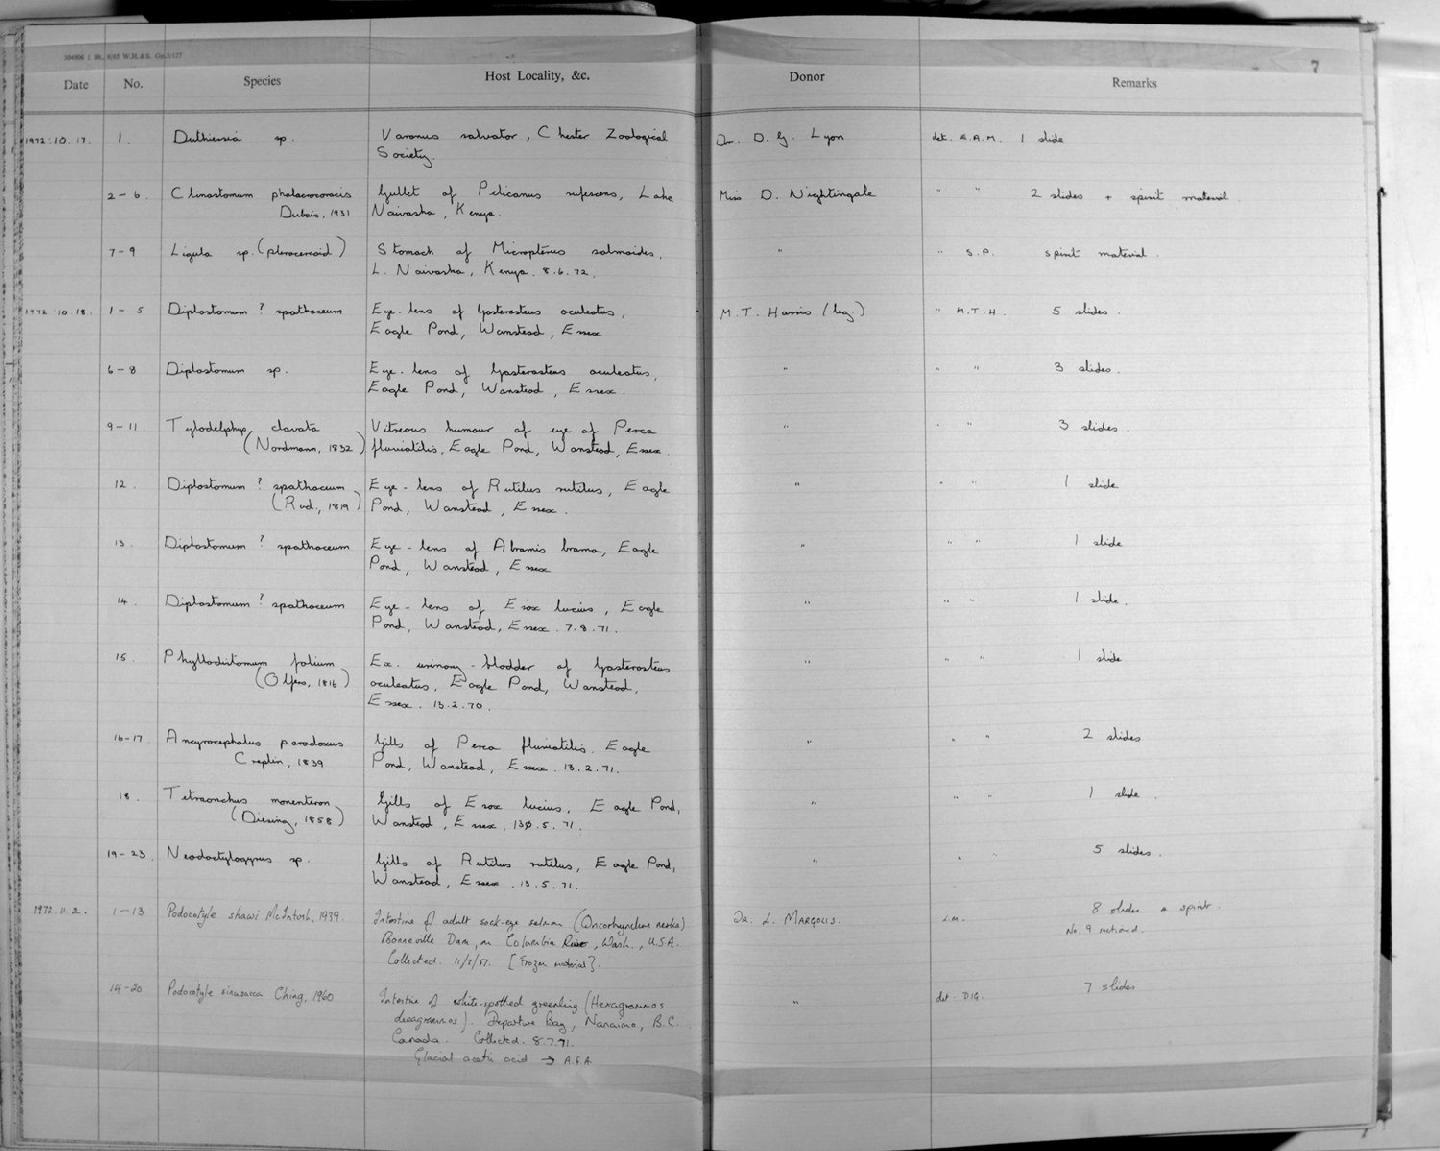 7
Date No. Species Host Locality, &c. Donor Remarks
1972.10.17. 1. Duthiersia sp. Varanus salvator, Chester Zoological Dr. D. G. Lyon det. E.A.M. 1 slide
Society.
2-6. Clinostomum phalacrocoracis Gullet of Pelicanus rufescens, Lake Miss D. Nightingale " " 2 slides + spirit material.
Dubois, 1931 Naivasha, Kenya.
7-9 Ligula sp. (plerocercoid) Stomach of Micropterus salmoides, " " S.P. spirit material.
L. Naivasha, Kenya. 8.6.72.
1972.10.18. 1-5 Diplostomum ? spathaceum Eye-lens of Gasterosteus aculeatus, M.T. Harris (leg.) " M.T.H. 5 slides.
Eagle Pond, Wanstead, Essex
6-8 Diplostomum sp. Eye-lens of Gasterosteus aculeatus, " " " 3 slides.
Eagle Pond, Wanstead, Essex.
9-11 Tylodelphys clavata Vitreous humour of eye of Perca " " " 3 slides.
(Nordmann, 1832) fluviatilis, Eagle Pond, Wanstead, Essex.
12. Diplostomum ? spathaceum Eye-lens of Rutilus rutilus, Eagle " " " 1 slide
(Rud., 1819) Pond, Wanstead, Essex.
13. Diplostomum ? spathaceum Eye-lens of Abramis brama, Eagle " " " 1 slide
Pond, Wanstead, Essex
14. Diplostomum ? spathaceum Eye-lens of Esox lucius, Eagle " " " 1 slide.
Pond, Wanstead, Essex. 7.8.71.
15. Phyllodistomum folium Ex. urinary-bladder of Gasterosteus " " " 1 slide
(Olfers, 1816) aculeatus, Eagle Pond, Wanstead,
Essex. 13.2.70.
16-17 Ancyrocephalus paradoxus Gills of Perca fluviatilis. Eagle " " " 2 slides
Creplin, 1839 Pond, Wanstead, Essex. 13.2.71.
18. Tetraonchus monenteron Gills of Esox lucius, Eagle Pond, " " " 1 slide.
(Diesing, 1858) Wanstead, Essex. 13.5.71.
19-23. Neodactylogyrus sp. Gills of Rutilus rutilus, Eagle Pond, " " " 5 slides.
Wanstead, Essex. 13.5.71.
1972.11.2. 1-13 Podocotyle shawi McIntosh, 1939. Intestine of adult sock-eye salmon (Oncorhynchus nerka) Dr. L. MARGOLIS. L.M. 8 slides & spirit.
Bonneville Dam, on Columbia River, Wash., U.S.A. No. 9 retained.
Collected. 11/5/57. [Frozen material].
14-20 Podocotyle sinusacca Ching, 1960 Intestine of white-spotted greenling (Hexagrammos " det. DIG. 7 slides
decagrammos). Departure Bay, Nanaimo, B.C.
Canada. Collected. 8.7.71.
Glacial acetic acid → A.F.A.